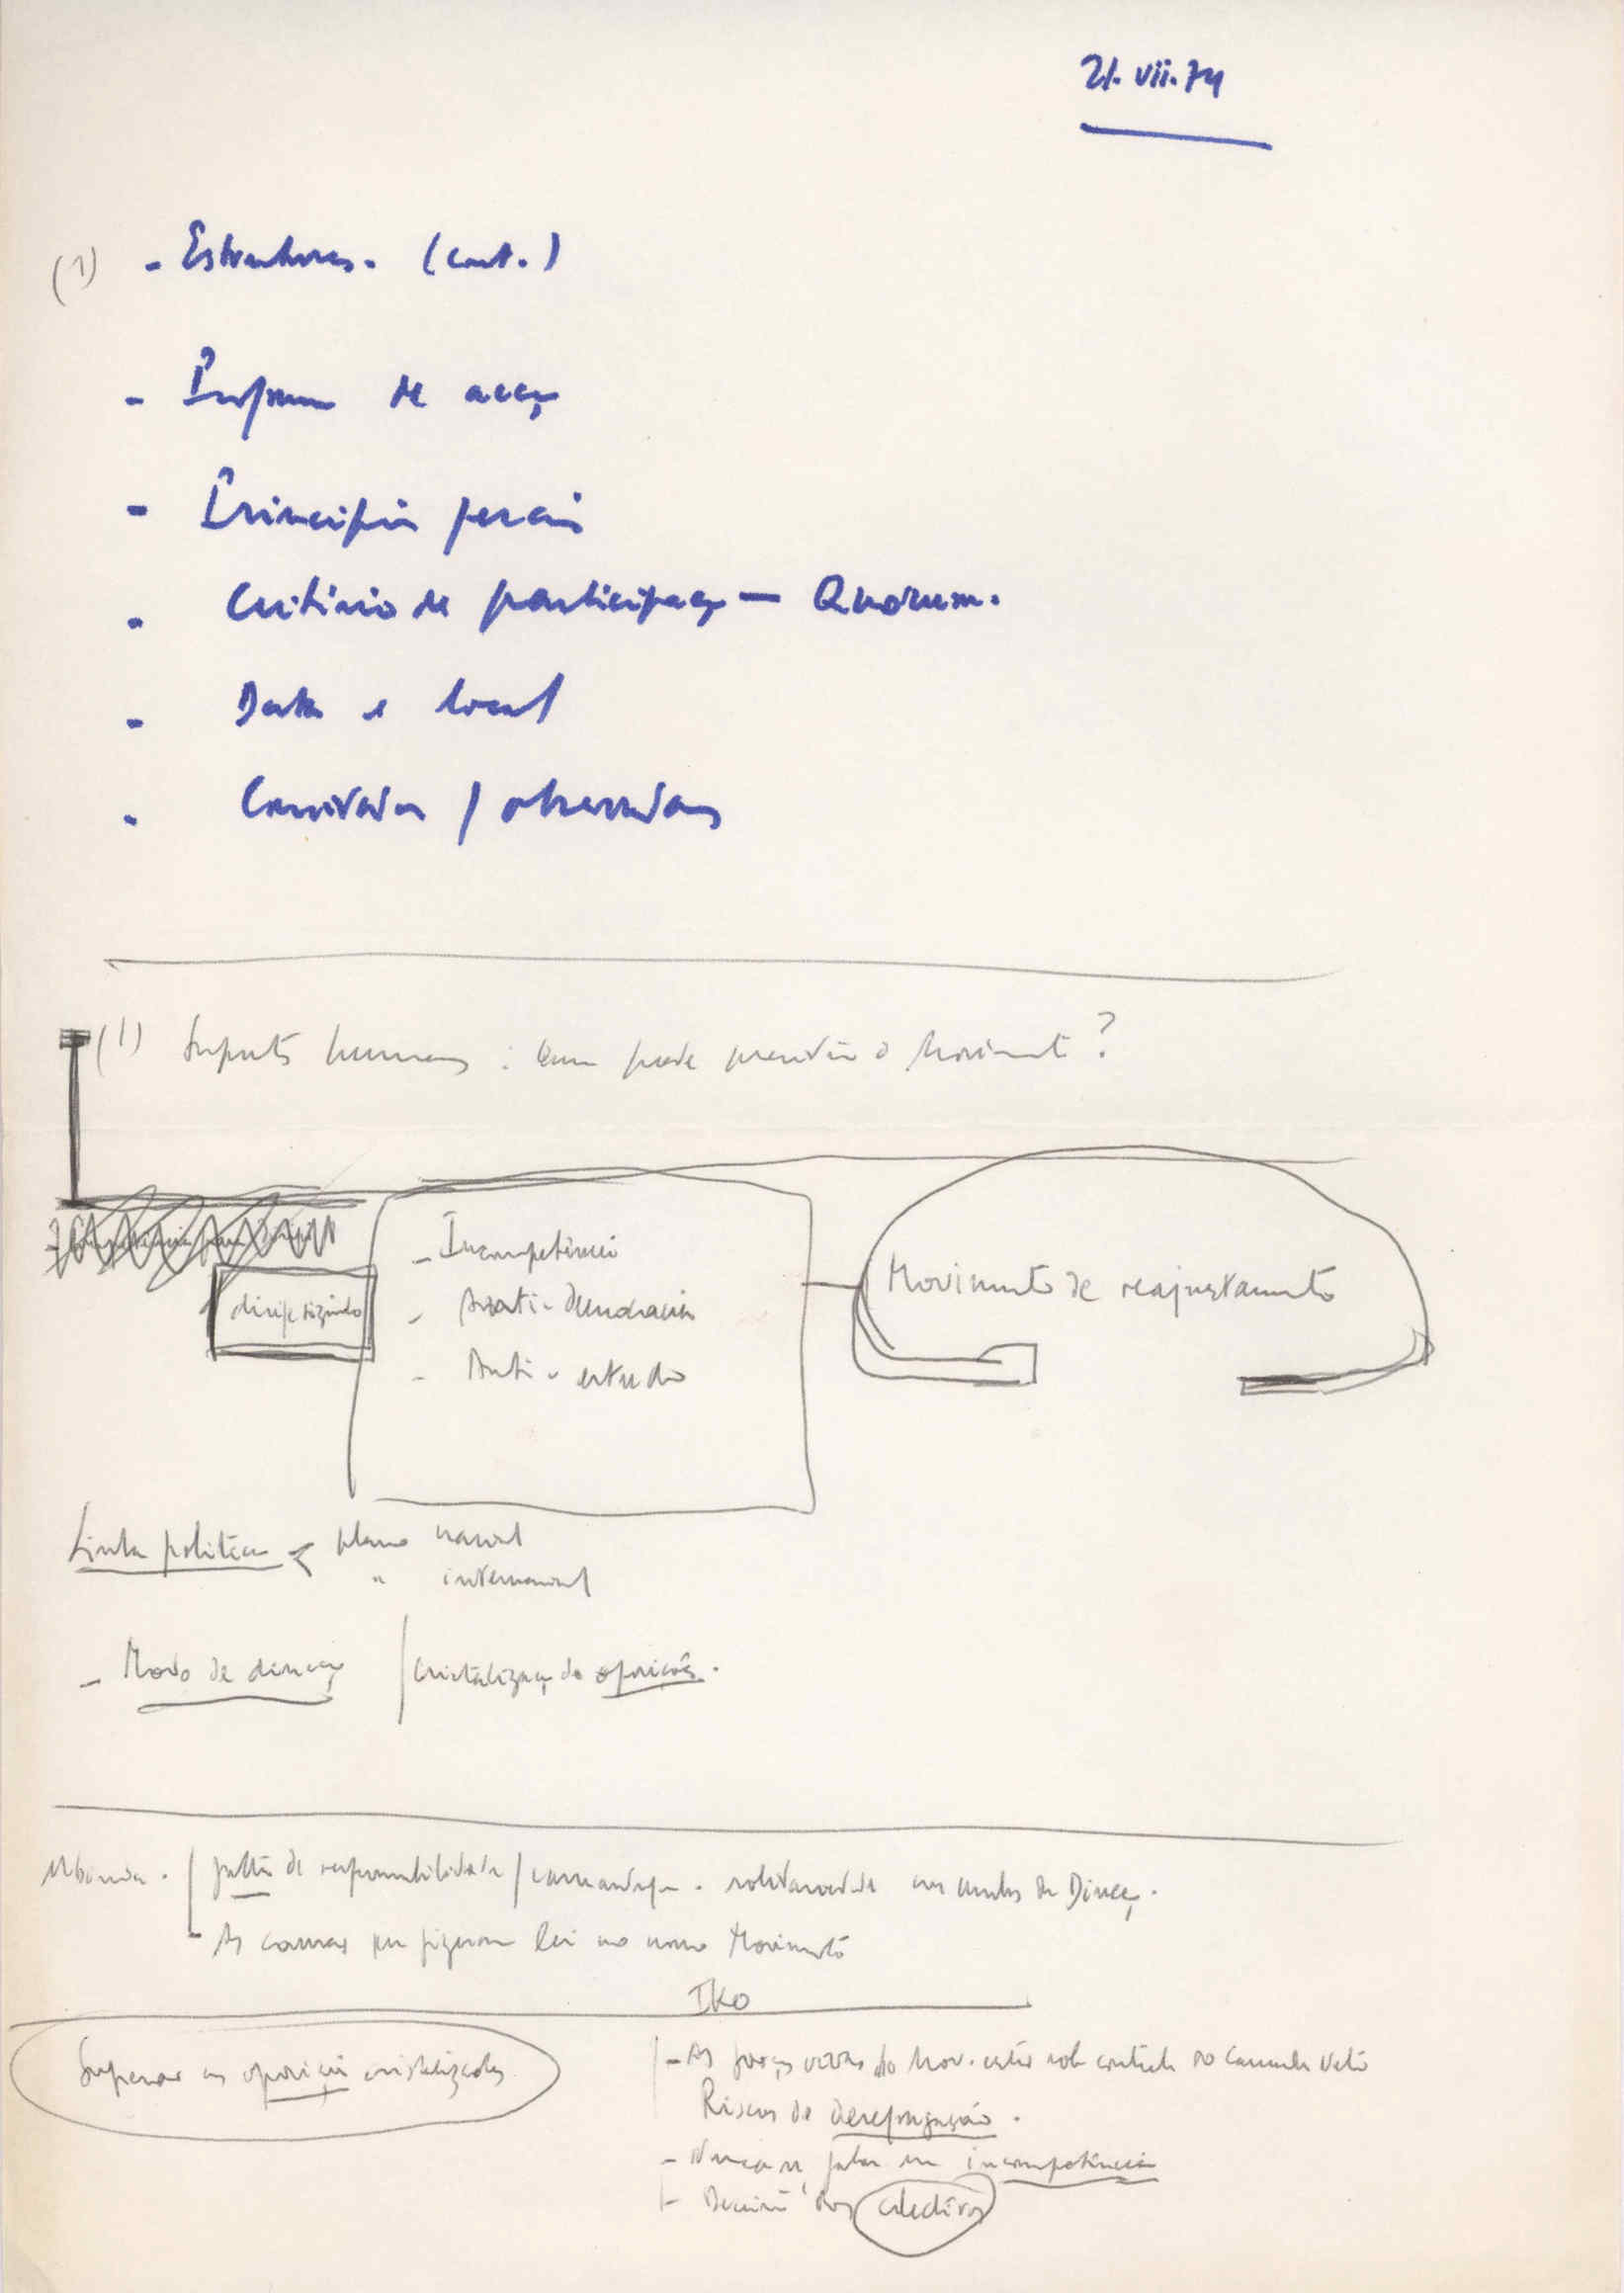 21.vii.74
(1) - Estruturas. (cont.)
- Programa de acção
- Princípios gerais
- Critério de participação — Quorum.
- Data e local
- Convidados / observadores
(1) Suporte humano : quem pode o Movimento ?
- Incompetência
dirigido
- Anti-democracia
- Anti-estudo
Movimento de reajustamento
Linha política < plano nacional
" internacional
- Modo de direcção / cristalização de oposições.
falta de responsabilidade / camaradagem. solidariedade Direcção.
As causas que fizeram lei no nosso Movimento
IKO
Superar as oposições cristalizadas
- As forças vivas do Mov. estão sob controle do Camarada Neto
Riscos de desagregação.
- Nunca se falou em incompetência
- Decisão dos colectivos